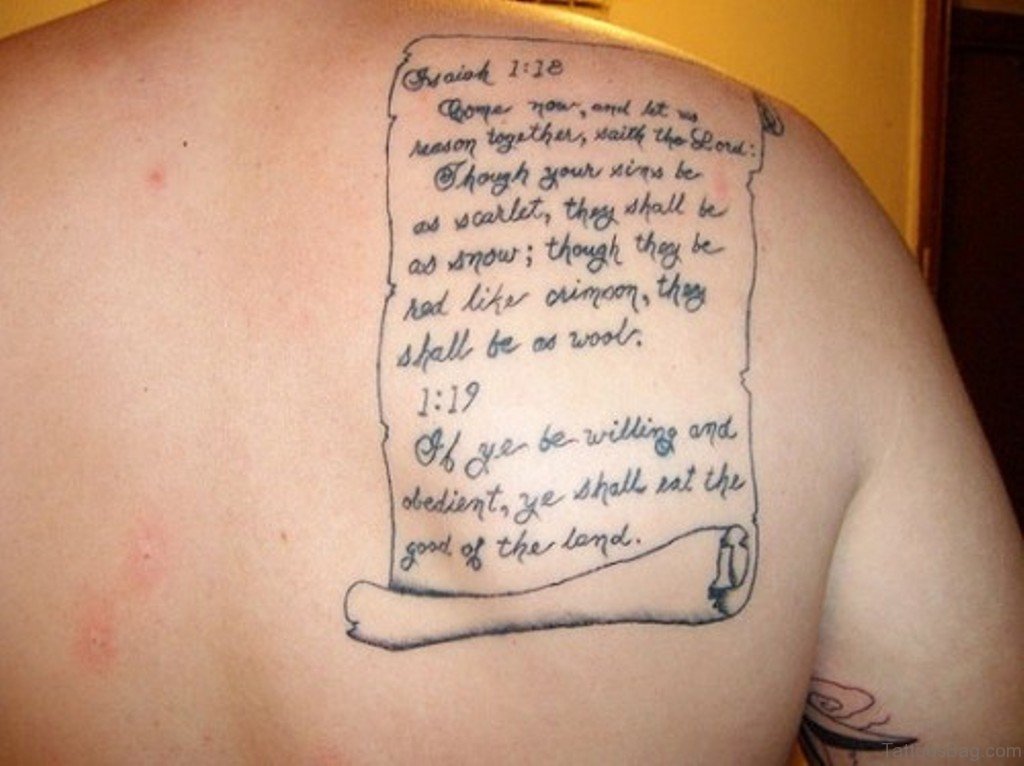 Isaiah 1:18
Come now, and let us
reason together, saith the Lord:
Though your sins be
as scarlet, they shall be
as snow; though they be
red like crimson, they
shall be as wool.
1:19
If ye be willing and
obedient, ye shall eat the
good of the land.
TattoosBag.com